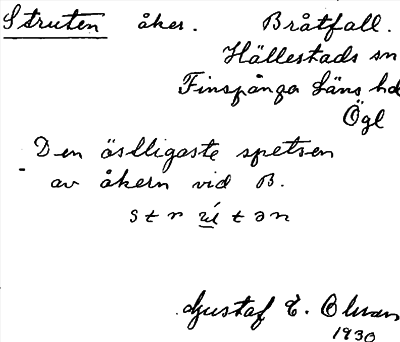 Struten åker. Bråtfall.
Hällestads sn
Finspånga Läns hd
Ögl
Den östligaste spetsen
av åkern vid B.
strú̲tən
Gustaf E. Olman
1930